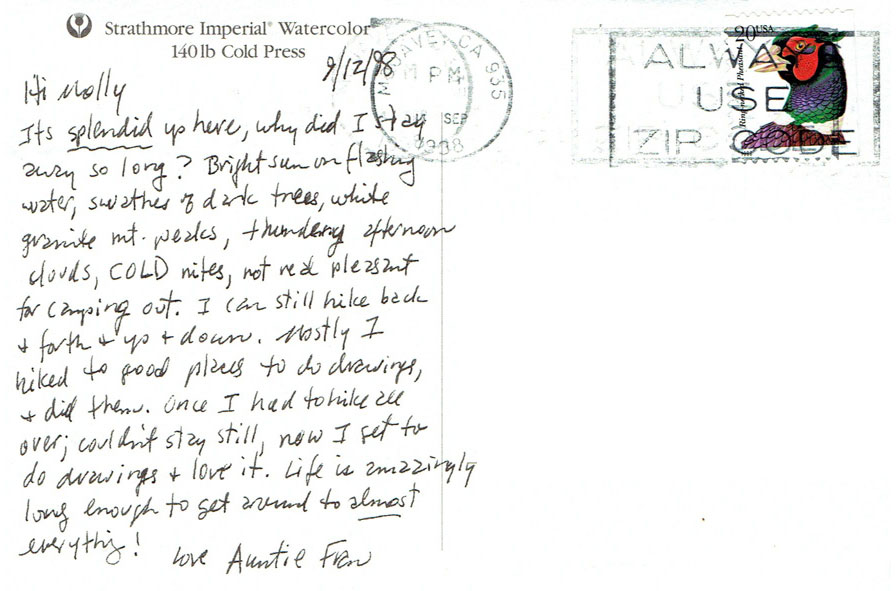 Strathmore Imperial® Watercolor
140lb Cold Press
9/12/98
MOJAVE, CA 935
PM
SEP
1998
ALWAYS
USE
ZIP CODE
20USA
Ring-necked Pheasant
Hi Molly
Its splendid up here, why did I stay
away so long? Bright sun on flashing
water, swathes of dark trees, white
granite mt. peaks, thundery afternoon
clouds, COLD nites, not real pleasant
for camping out. I can still hike back
+ forth + up + down. Mostly I
hiked to good places to do drawings,
+ did them. Once I had to hike all
over; couldn't stay still, now I get to
do drawings + love it. Life is amazingly
long enough to get around to almost
everything!
Love Auntie Fran